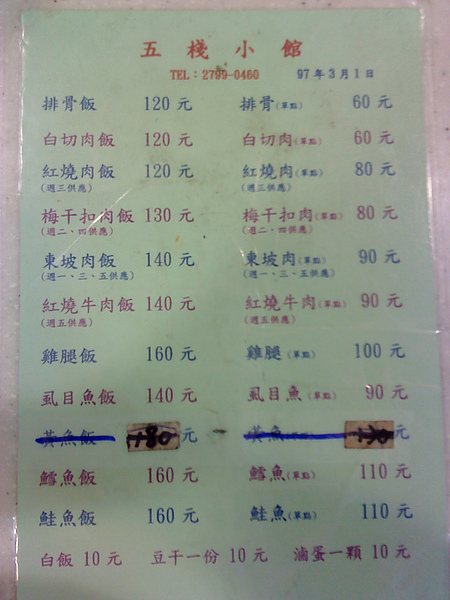 五棧小館
TEL：2799-0460 97年3月1日
排骨飯 120 元 排骨(單點) 60 元
白切肉飯 120 元 白切肉(單點) 60 元
紅燒肉飯 120 元 紅燒肉(單點) 80 元
(週三供應) (週三供應)
梅干扣肉飯 130 元 梅干扣肉(單點) 80 元
(週二、四供應) (週二、四供應)
東坡肉飯 140 元 東坡肉(單點) 90 元
(週一、三、五供應) (週一、三、五供應)
紅燒牛肉飯 140 元 紅燒牛肉(單點) 90 元
(週五供應) (週五供應)
雞腿飯 160 元 雞腿(單點) 100 元
虱目魚飯 140 元 虱目魚(單點) 90 元
黃魚飯 180 元 黃魚 130 元
鱈魚飯 160 元 鱈魚(單點) 110 元
鮭魚飯 160 元 鮭魚(單點) 110 元
白飯 10 元 豆干一份 10 元 滷蛋一顆 10 元